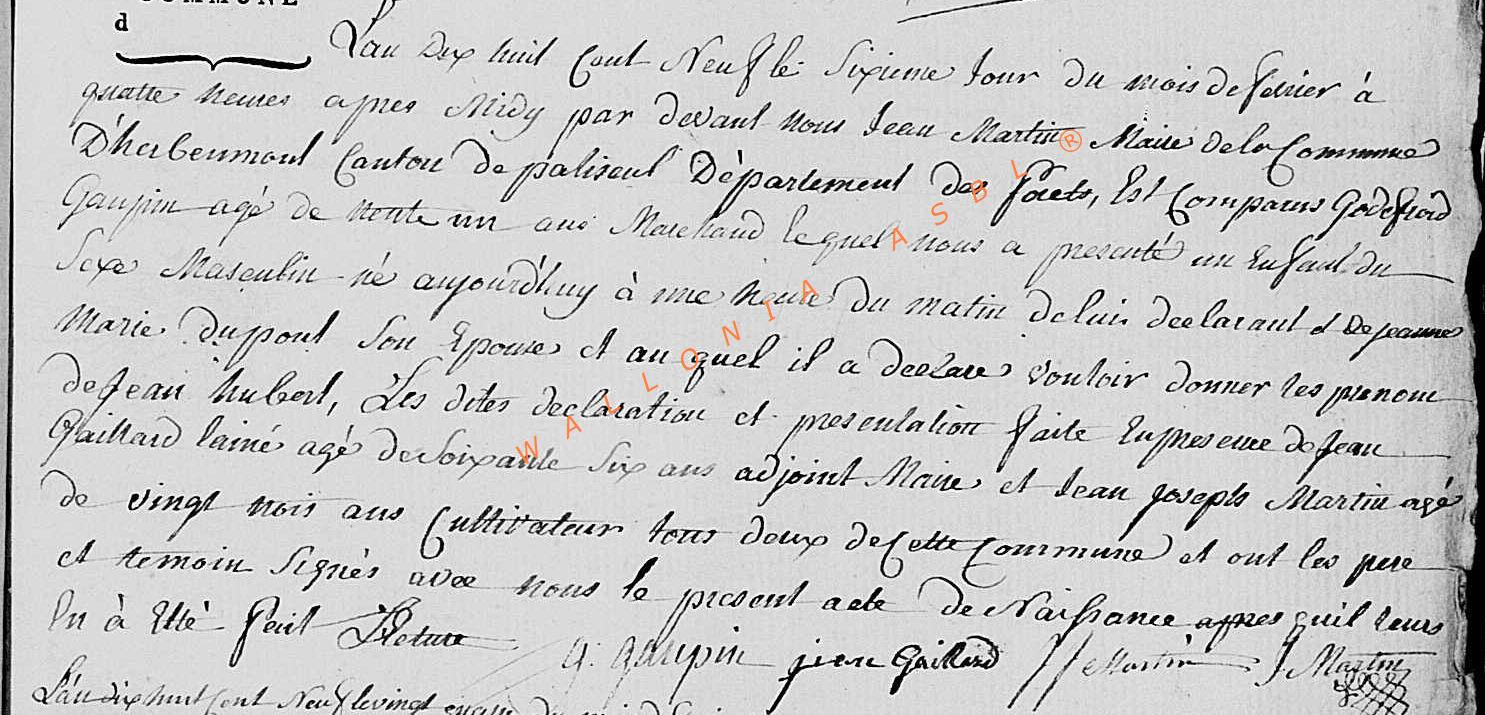 COMMUNE
d
L'an dix huit Cent Neuf le Sixieme Jour du mois de fevrier à
quatre heures apres Midy par devant nous Jean Martin Maire de la Commune
D'herbeumont Canton de paliseul Département des forets, Est Comparus Godefroid
Gaupin agé de trente un ans Marchand lequel nous a presenté un Enfant du
Sexe Masculin né aujourd'huy à une heure du matin de lui declarant et De jeanne
Marie dupont Son Epouse et au quel il a declare vouloir donner les prenom
de Jean hubert, Les dites declaration et presentation faite En presence de Jean
Gaillard lainé agé de Soixante Six ans adjoint Maire et Jean Joseph Martin agé
de vingt trois ans Cultivateur tous deux de Cette Commune et ont les pere
et temoin Signés avec nous le present acte de Naissance apres quil leurs
En à Etté fait Lecture
G. Gaupin jean Gaillard JJ Martin J Martin
L'an dix huit Cent Neuf le vingt
WALLONIA ASBL ®